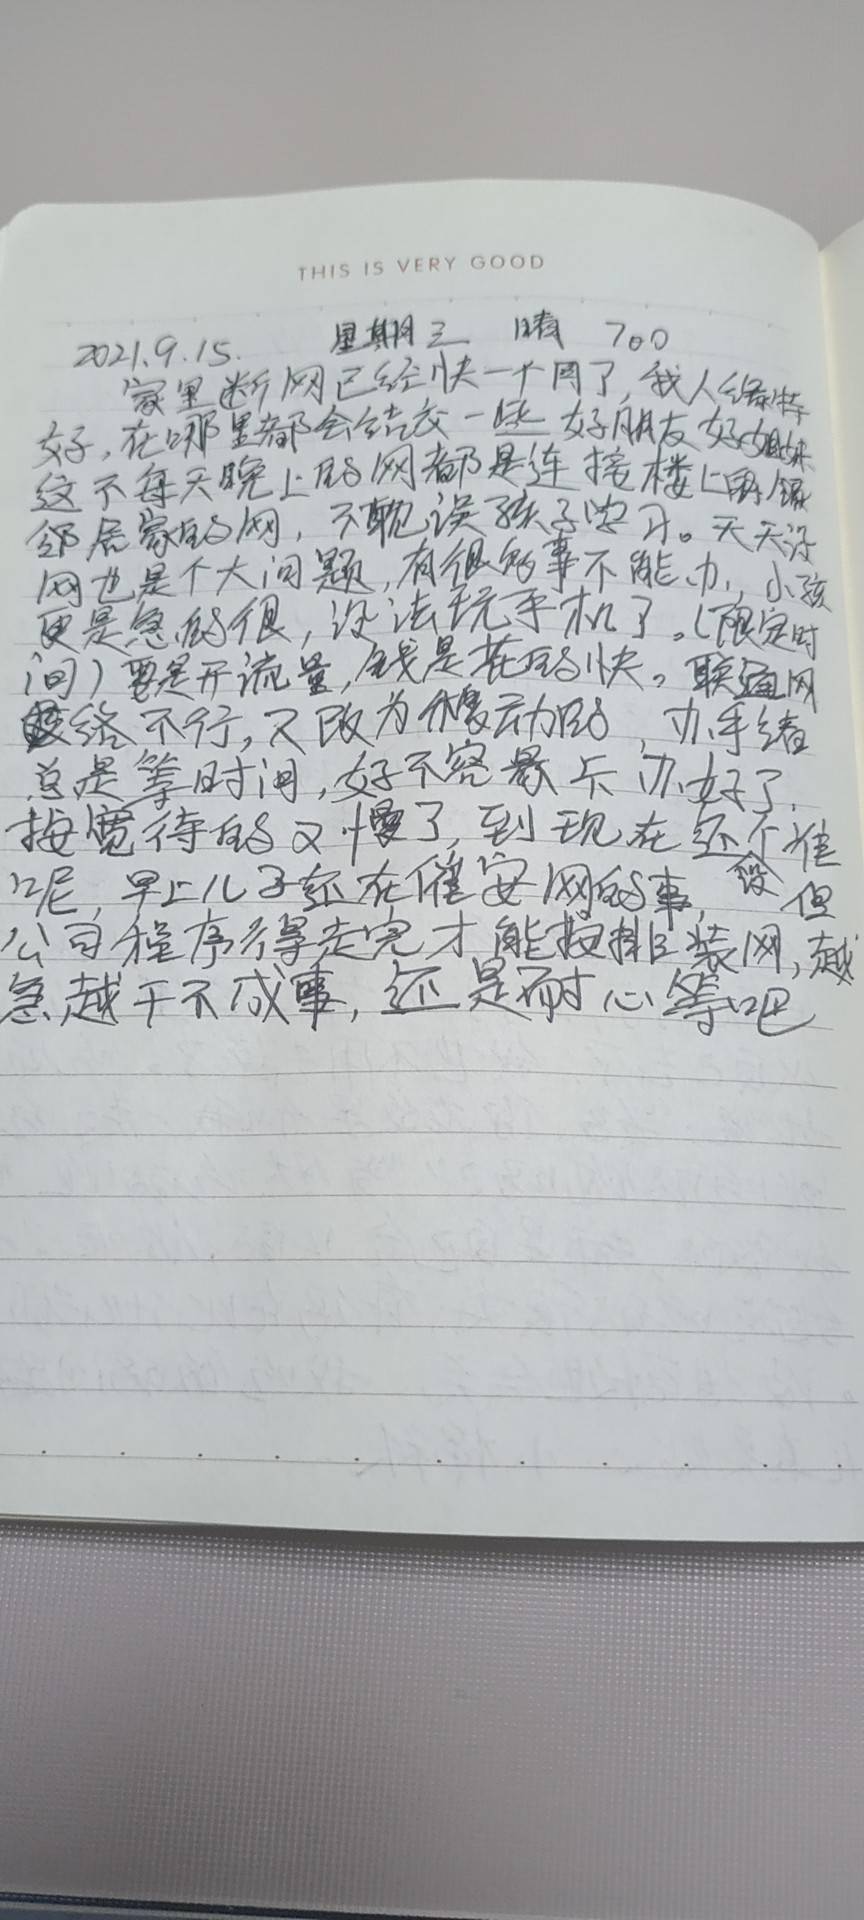 THIS IS VERY GOOD
2021.9.15. 星期三 晴 700
家里断网已经快一个周了,我人缘特
好,在哪里都会结交一些好朋友好姐妹
这不每天晚上的网都是连接楼上
邻居家的网,不耽误孩子学习。天天没
网也是个大问题,有很多事不能办,小孩
更是急的很,没法玩手机了。(限定时
间)要是开流量,钱是花的快。联通网
络不行,又改为移动的,办手续
总是等时间,好不容易卡办好了,
按宽待的又慢了,到现在还个谁
呢,早上儿子还在催安网的事,没 但
公司程序得走完才能按排装网,越
急越干不成事,还是耐心等吧